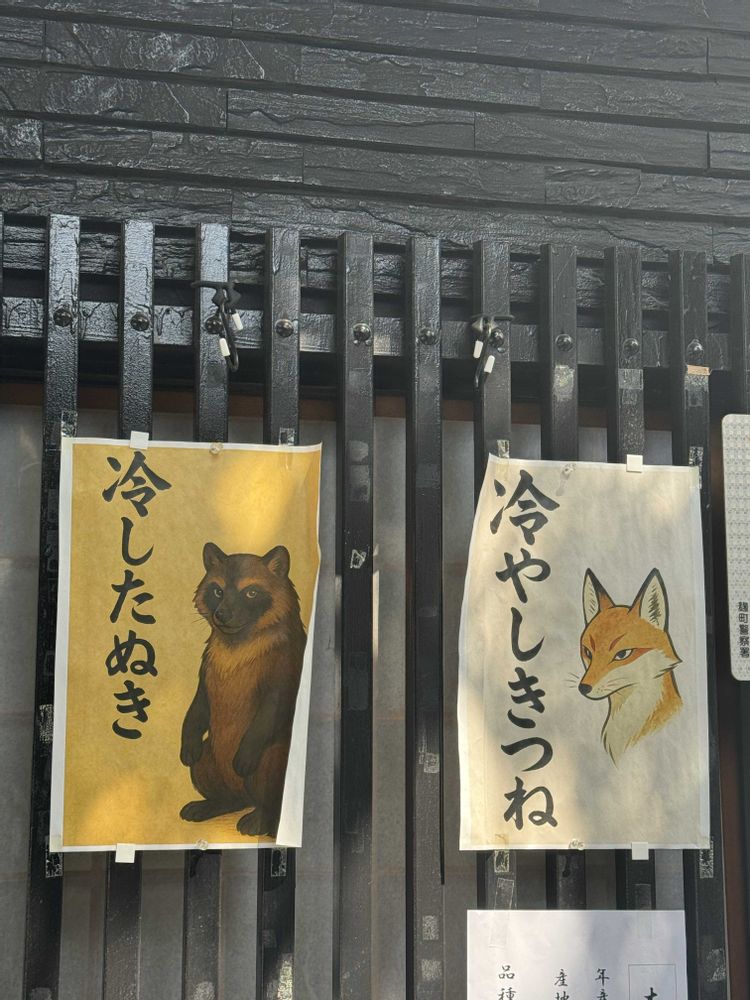 冷したぬき
冷やしきつね
麹町警察署
年産
産地
品種